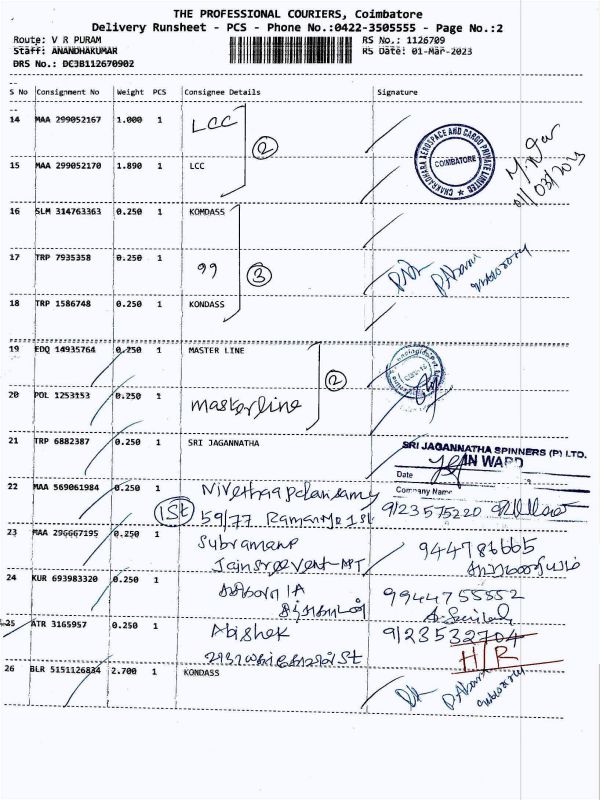 THE PROFESSIONAL COURIERS, Coimbatore
Delivery Runsheet - PCS - Phone No.:0422-3505555 - Page No.:2
Route: V R PURAM RS No.: 1126709
Staff: ANANDHAKUMAR RS Date: 01-Mar-2023
DRS No.: DC3B112670902
S No Consignment No Weight PCS Consignee Details Signature
14 MAA 299052167 1.000 1 LCC
2
CHAKRADHARA AEROSPACE AND CARGO PRIVATE LIMITED
COIMBATORE
01/03/2023
15 MAA 299052170 1.890 1 LCC
16 SLM 314763363 0.250 1 KOMDASS
17 TRP 7935358 0.250 1 99 3
18 TRP 1586748 0.250 1 KONDASS
19 EDQ 14935764 0.250 1 MASTER LINE
2
20 POL 1253153 0.250 1 masterline
21 TRP 6882387 0.250 1 SRI JAGANNATHA
SRI JAGANNATHA SPINNERS (P) LTD.
INWARD
Date
Company Name
22 MAA 569061984 0.250 1 Nivethaa Palanisamy
1St 59/77 Ramanuja 1st 9123575220
23 MAA 296667195 0.250 1 Subramani 944786665
Jainsreevent-MT
24 KUR 693983320 0.250 1 9944755552
25 ATR 3165957 0.250 1 Abishek 9123532704
St H/R
26 BLR 5151126834 2.700 1 KONDASS